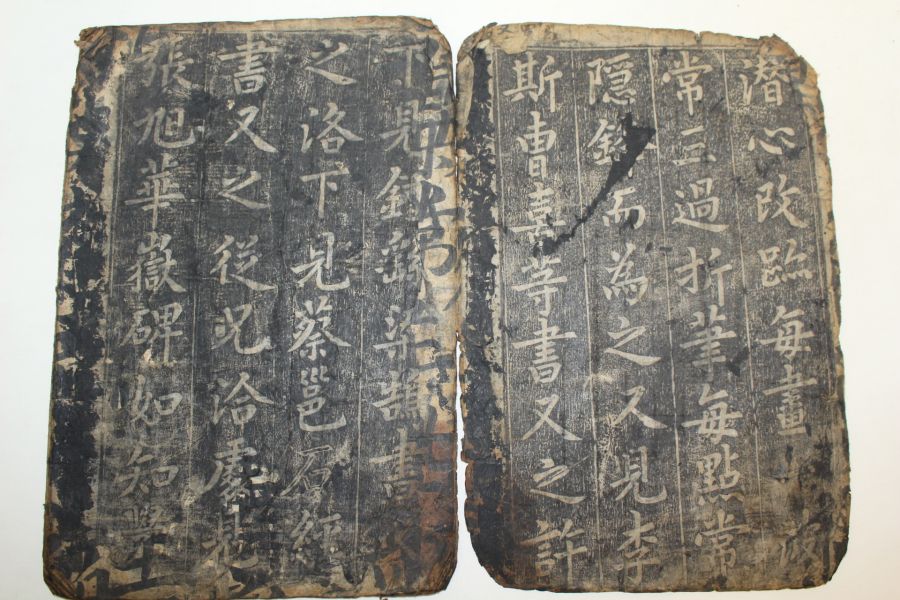 潛心改跡每畫波
常三過折筆每點常
隱鋒而為之又見李
斯曹喜等書又之許
下見鍾繇梁鵠書
之洛下見蔡邕石經
書又之從兄洽處見
張旭華嶽碑如知學